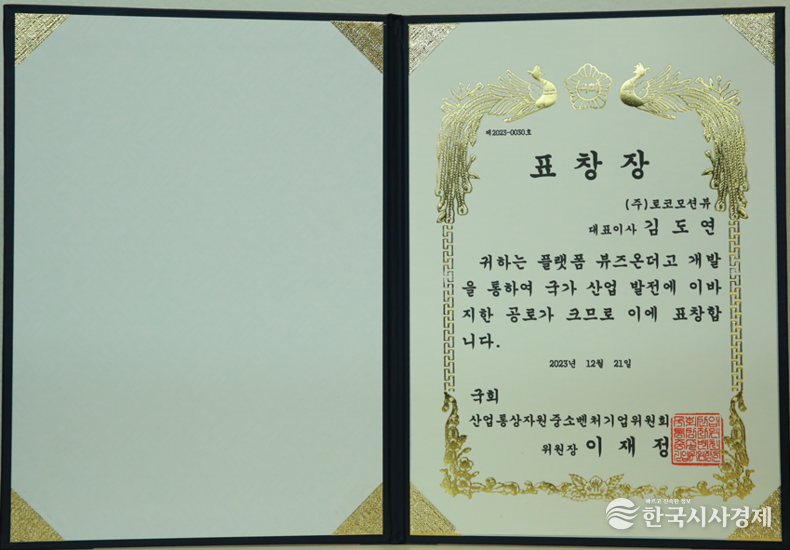 제2023-0030호
표 창 장
(주)로코모션뷰
대표이사 김 도 연
귀하는 플랫폼 뷰즈온더고 개발
을 통하여 국가 산업 발전에 이바
지한 공로가 크므로 이에 표창합
니다.
2023년 12월 21일
국회
산업통상자원중소벤처기업위원회
위원장 이 재 정
빠르고 신속한 정보
한국시사경제